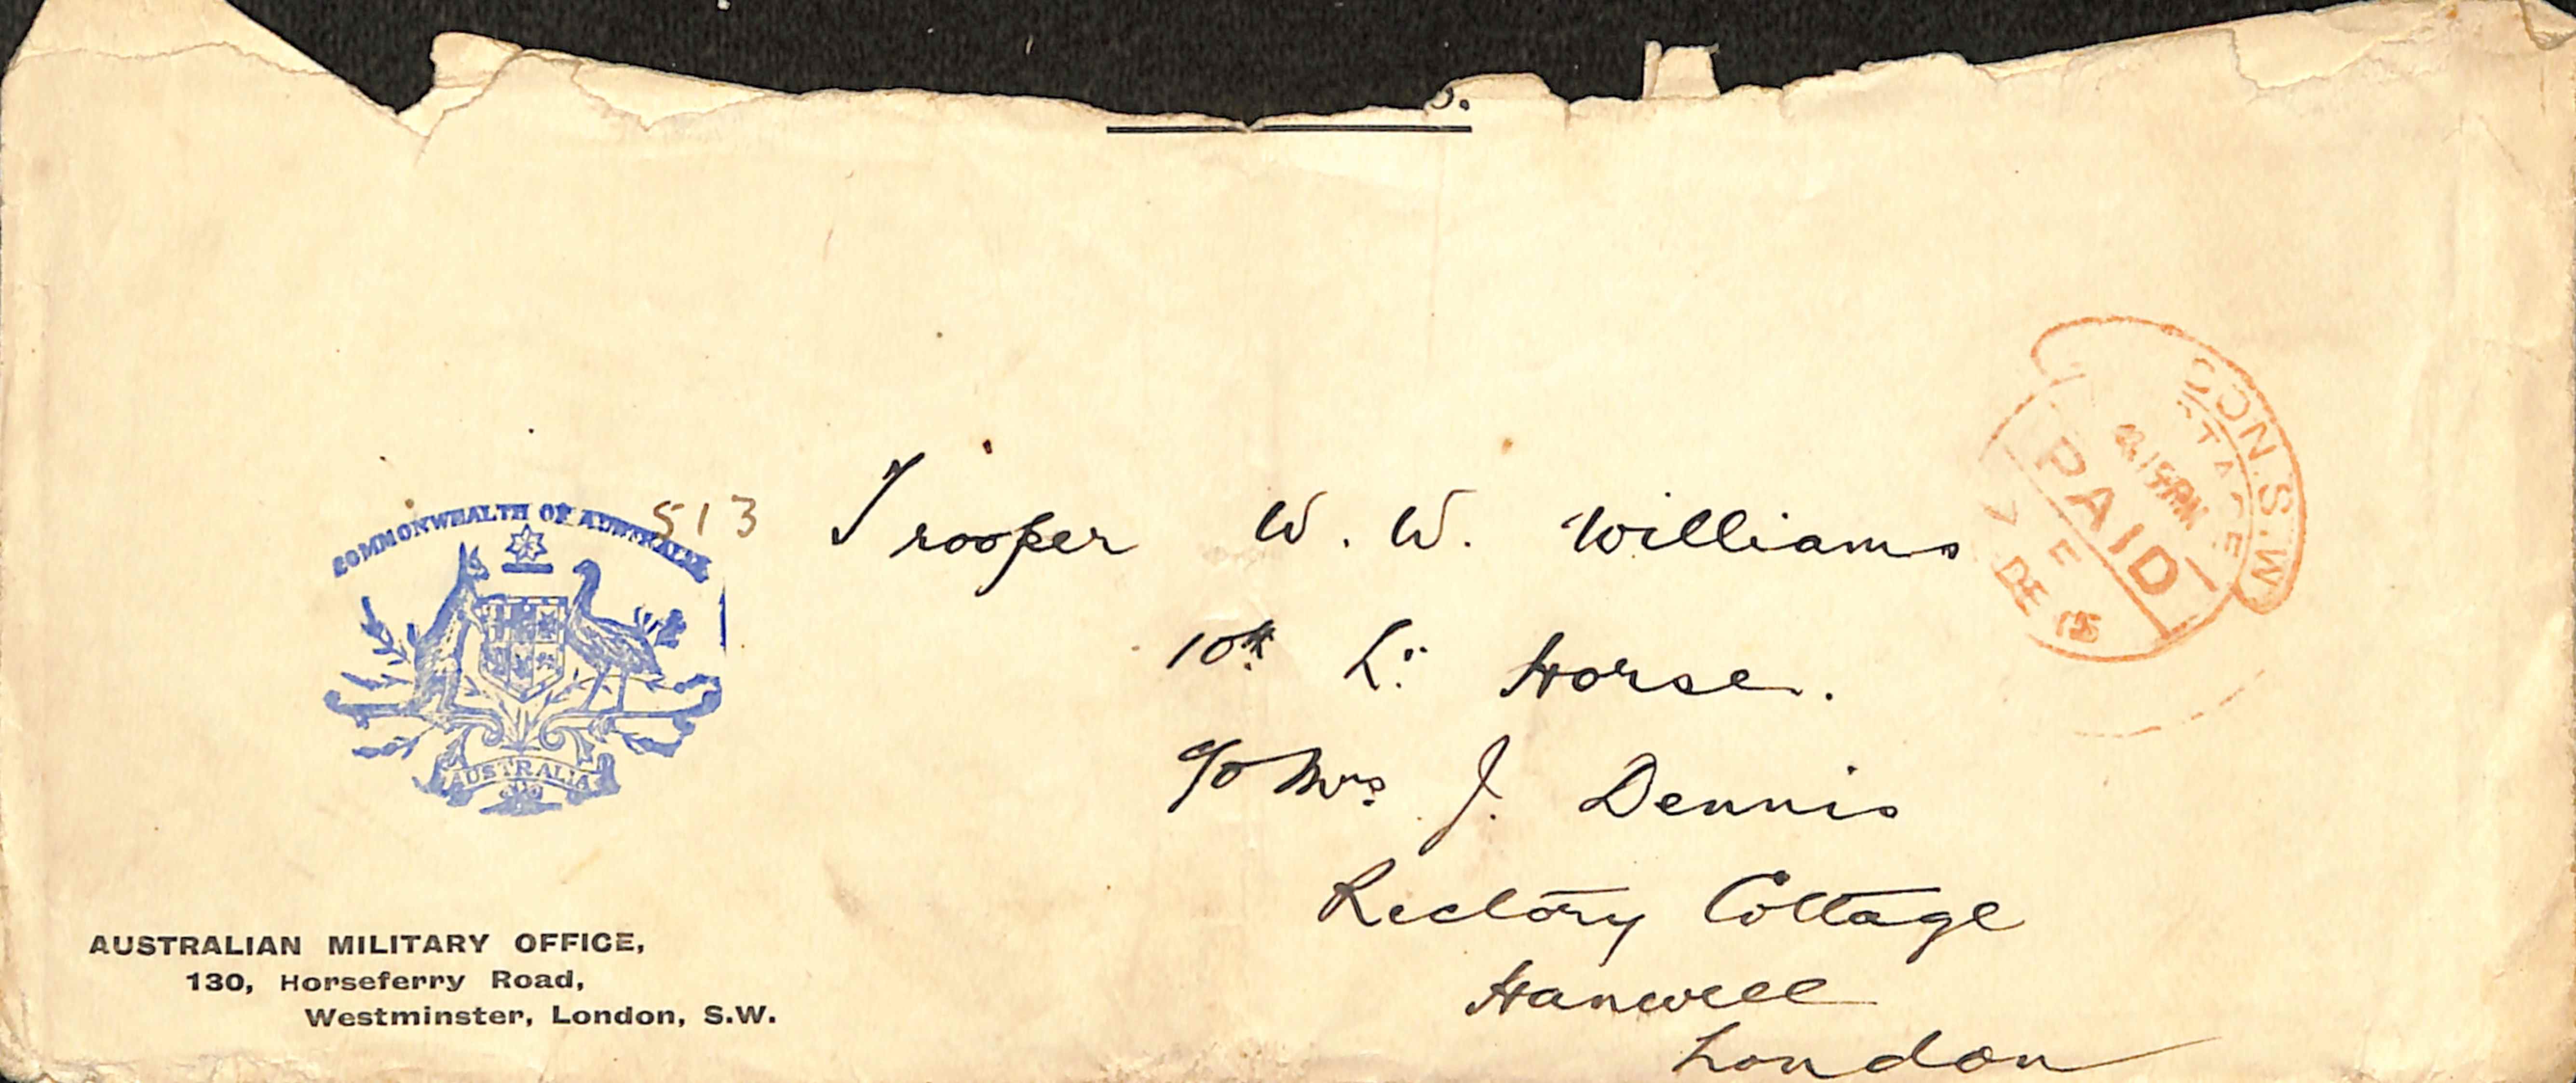 COMMONWEALTH OF AUSTRALIA
513
Trooper W. W. Williams
10th Lt Horse.
c/o Mrs J. Dennis
Rectory Cottage
Hanwell
London
AUSTRALIA
AUSTRALIAN MILITARY OFFICE,
130, Horseferry Road,
Westminster, London, S.W.
DON.S.W
PAID
DE 15